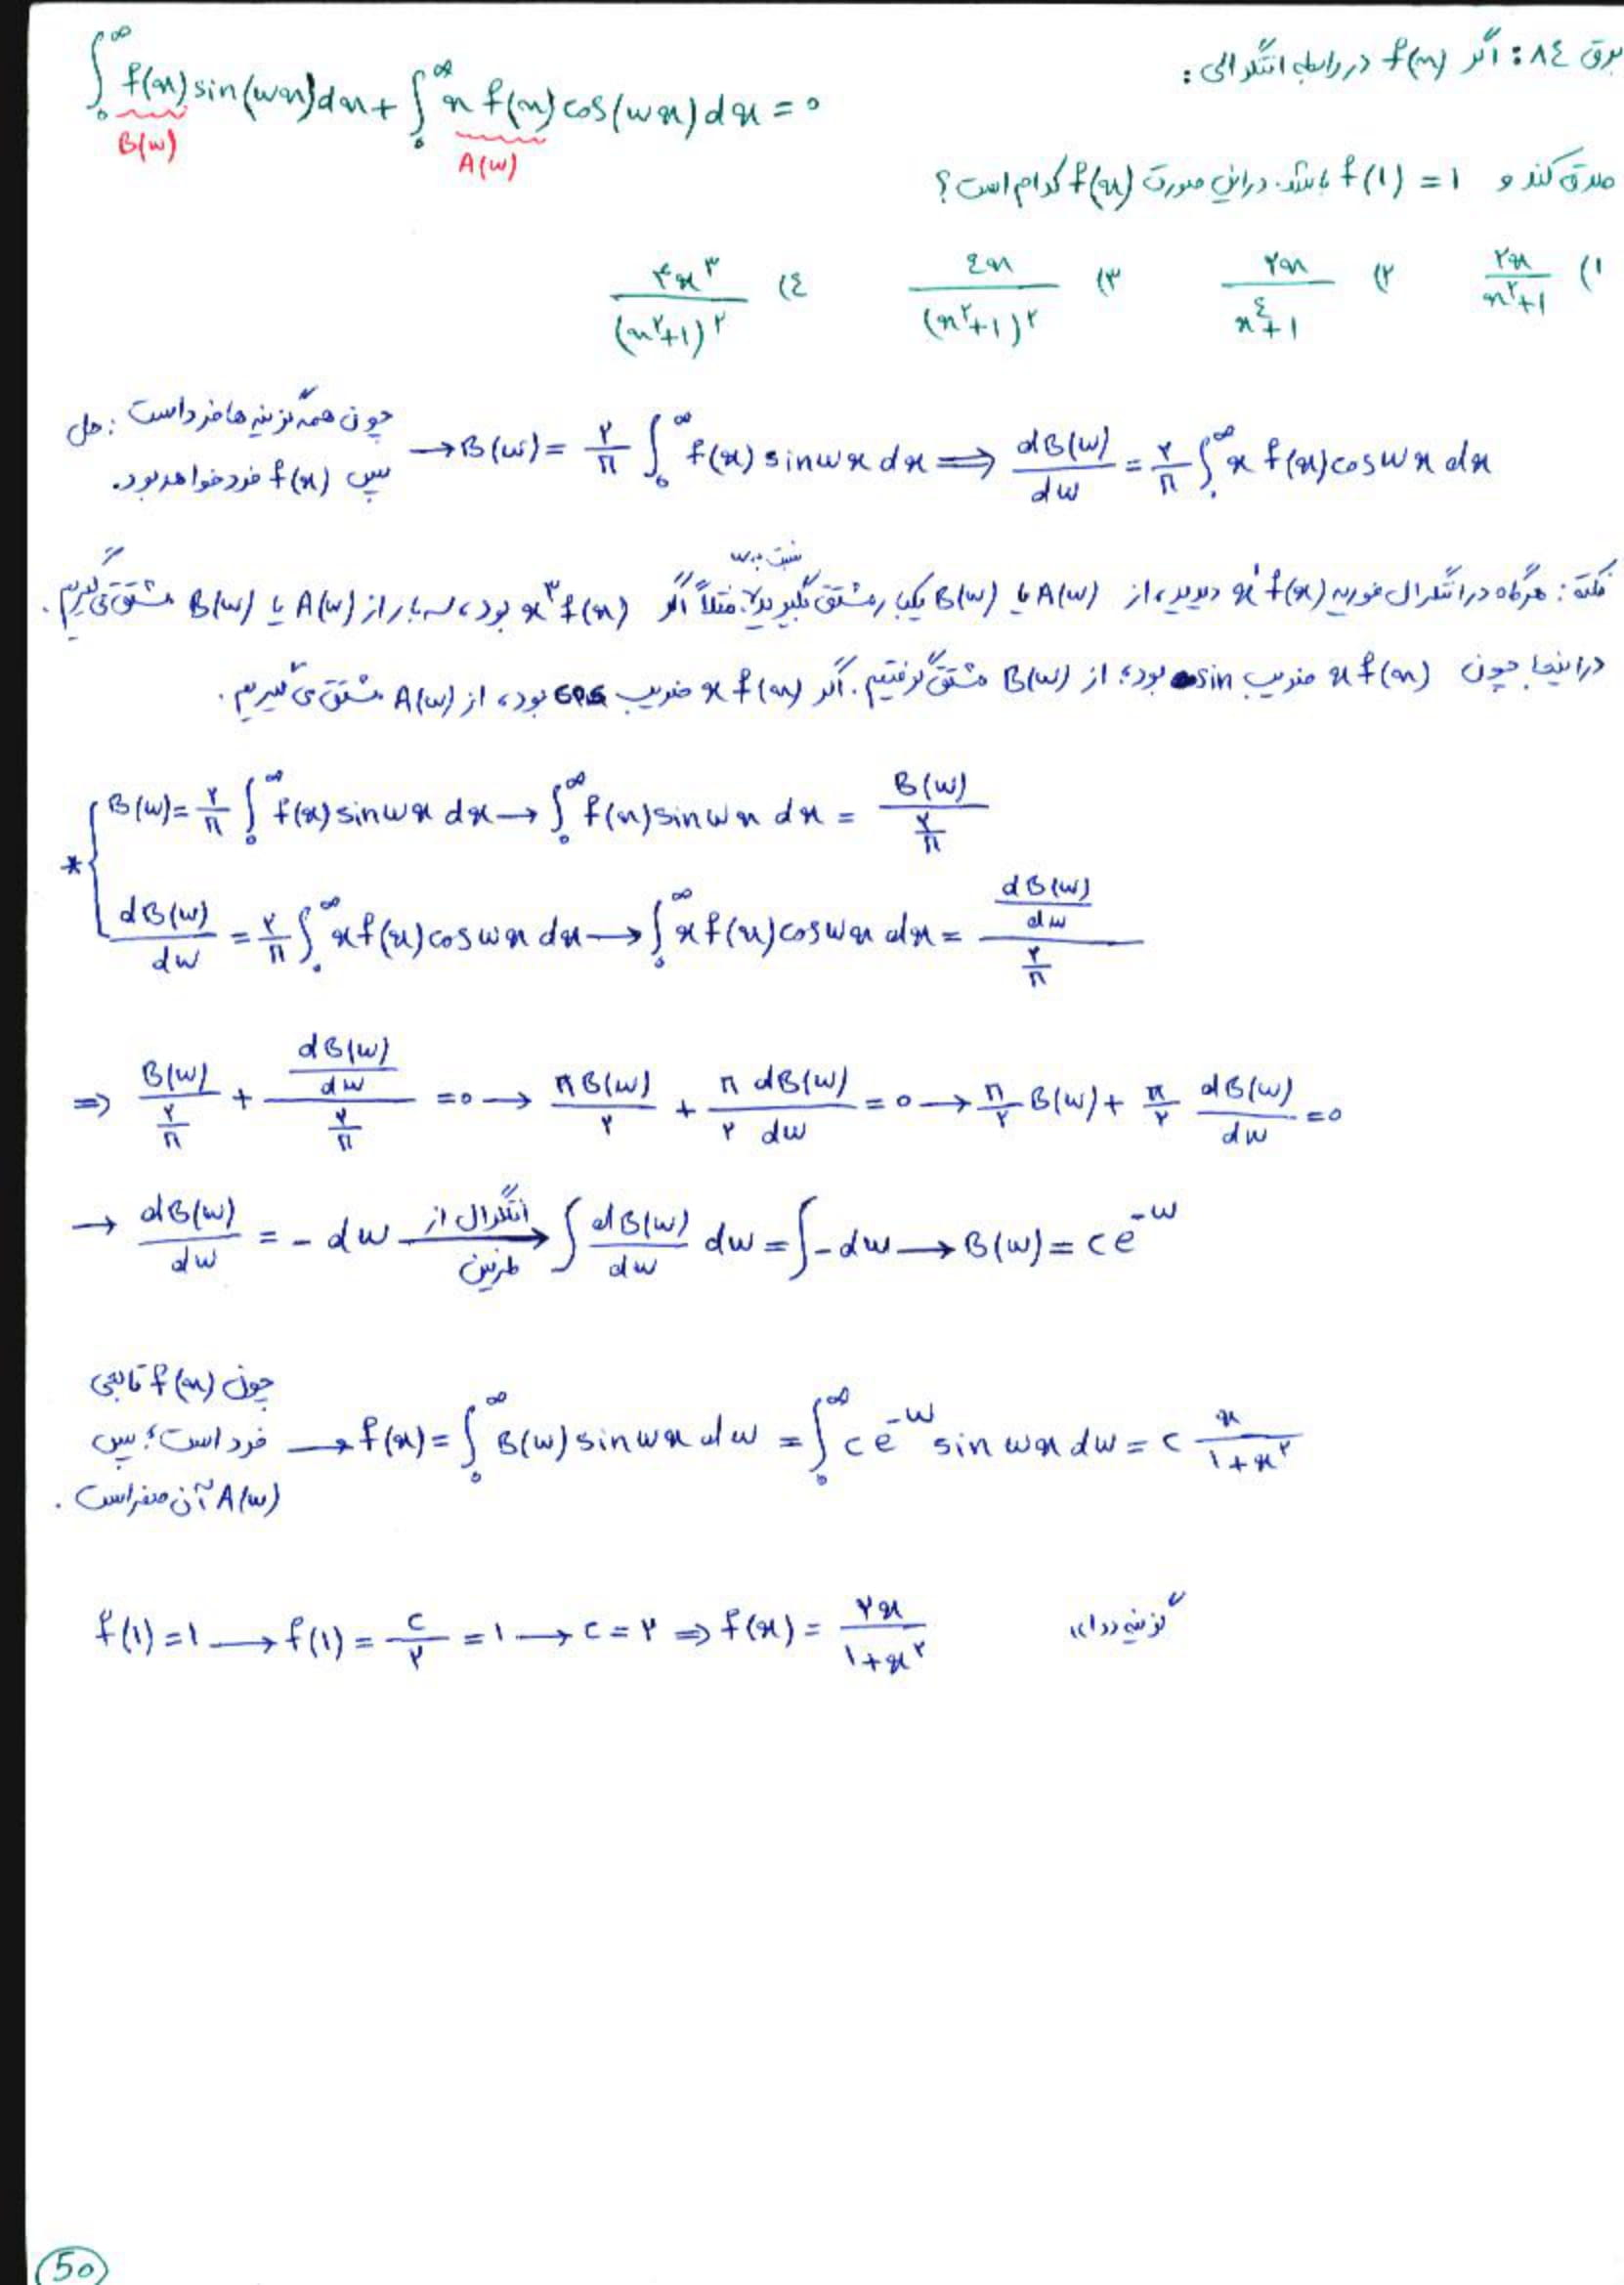 برق ٨٤: اگر f(x) در رابطه انتگرالی:
∫₀^∞ f(x) sin(wx)dx + ∫₀^∞ x f(x) cos(wx) dx = 0
B(w) A(w)
صدق کند و f(1) = 1 باشد. در این صورت f(x) کدام است؟
۱) ۲x/(x^۲+1) ۲) ۲x/(x^٤+1) ۳) ٤x/(x^۲+1)^۲ ٤) ۴x^۳/(x^۲+1)^۲
حل: چون همه گزینه ها فرد است پس f(x) فرد خواهد بود. → B(w) = ۲/π ∫₀^∞ f(x) sin wx dx ⟹ dB(w)/dw = ۲/π ∫₀^∞ x f(x) cos wx dx
نسبت به w
نکته: هرگاه در انتگرال فوریه x^1 f(x) دیدید، از A(w) یا B(w) یکبار مشتق بگیرید. مثلاً اگر x^۳ f(x) بود، سه بار از A(w) یا B(w) مشتق می گیریم.
در اینجا چون x f(x) ضریب sin بود؛ از B(w) مشتق گرفتیم. اگر x f(x) ضریب cos بود، از A(w) مشتق می گیریم.
* { B(w) = ۲/π ∫₀^∞ f(x) sin wx dx → ∫₀^∞ f(x) sin wx dx = B(w)/(۲/π)
dB(w)/dw = ۲/π ∫₀^∞ x f(x) cos wx dx → ∫₀^∞ x f(x) cos wx dx = (dB(w)/dw)/(۲/π)
⇒ B(w)/(۲/π) + (dB(w)/dw)/(۲/π) = 0 → πB(w)/۲ + π dB(w)/۲ dw = 0 → π/۲ B(w) + π/۲ dB(w)/dw = 0
→ dB(w)/dw = - dw انتگرال از طرفین → ∫ dB(w)/dw dw = ∫ - dw → B(w) = c e^-w
چون f(x) تابعی فرد است؛ پس A(w) آن صفر است. → f(x) = ∫₀^∞ B(w) sin wx dw = ∫₀^∞ c e^-w sin wx dw = c x/(1+x^۲)
f(1) = 1 → f(1) = c/۲ = 1 → c = ۲ ⇒ f(x) = ۲x/(1+x^۲) گزینه «۱»
50